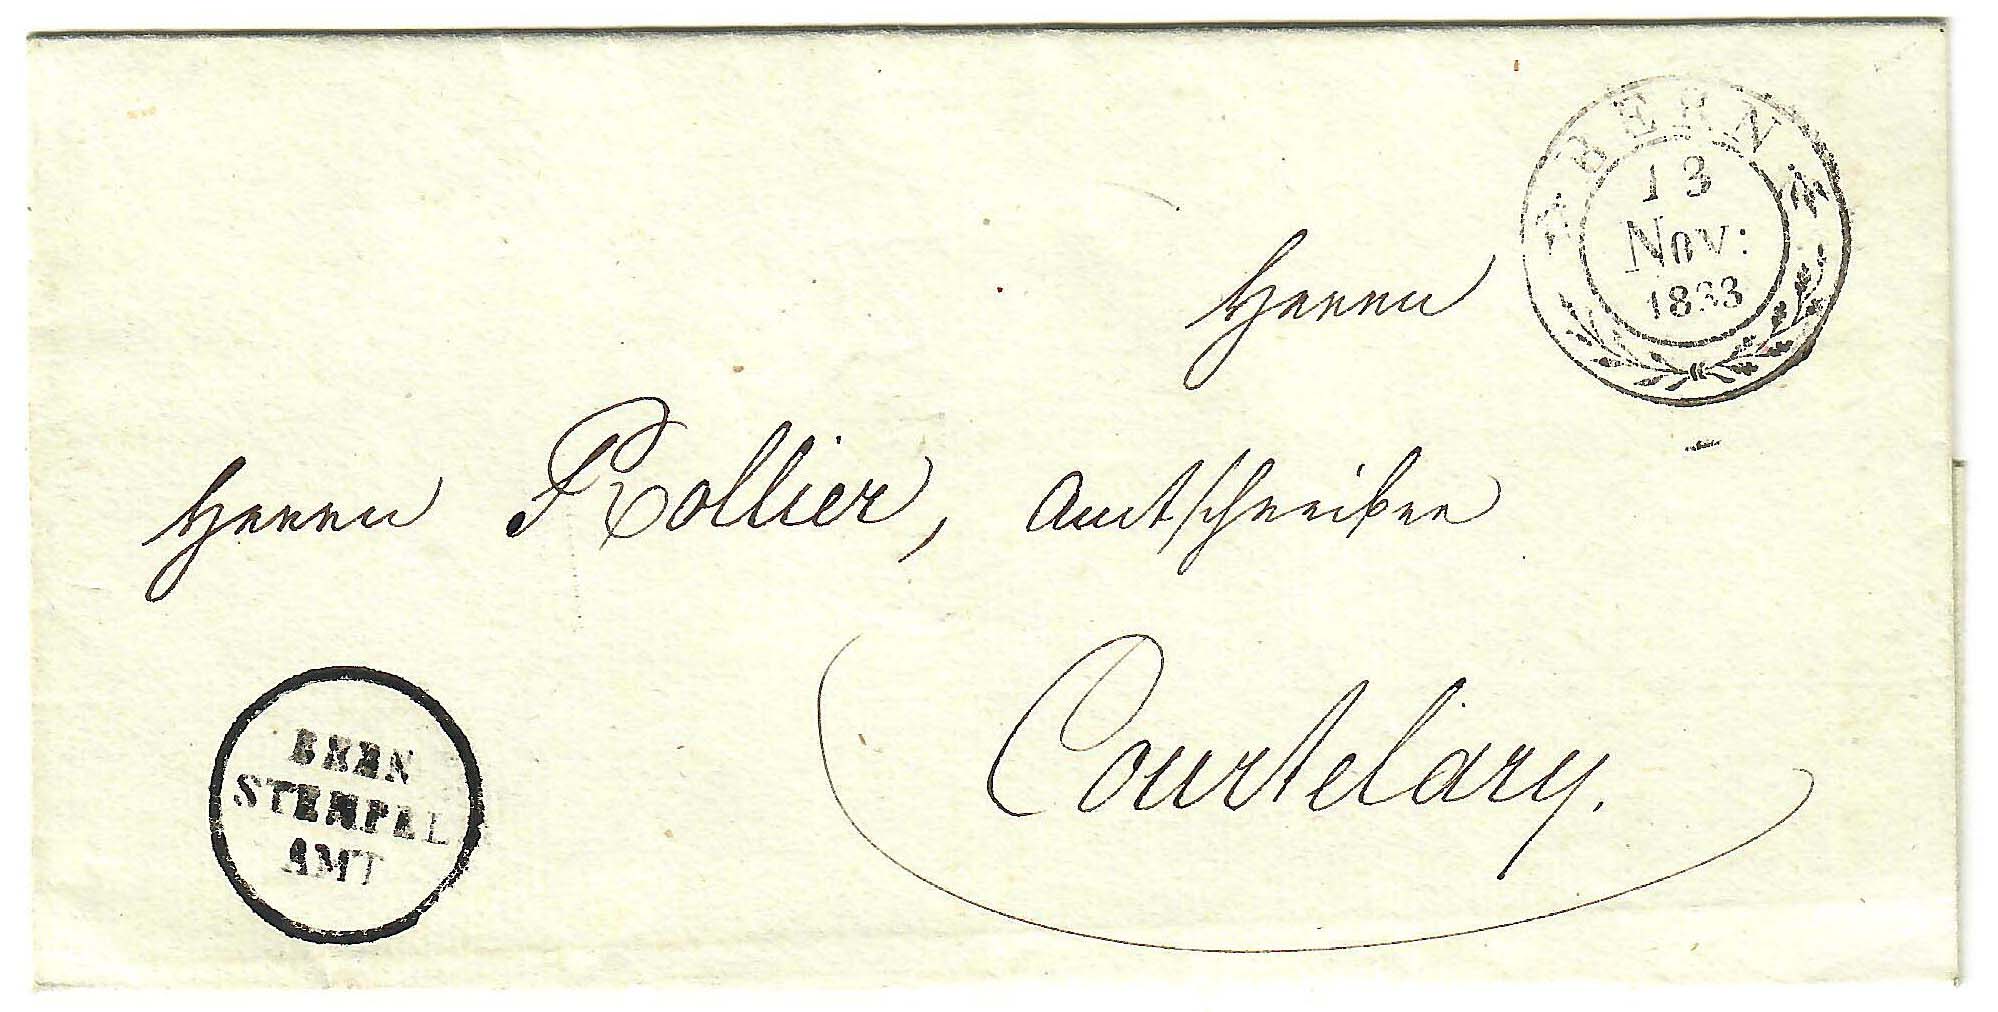 BERN
13
Nov:
1833
Herrn
Herrn Rollier, Amtschreiber
Courtelary.
BERN
STEMPEL
AMT